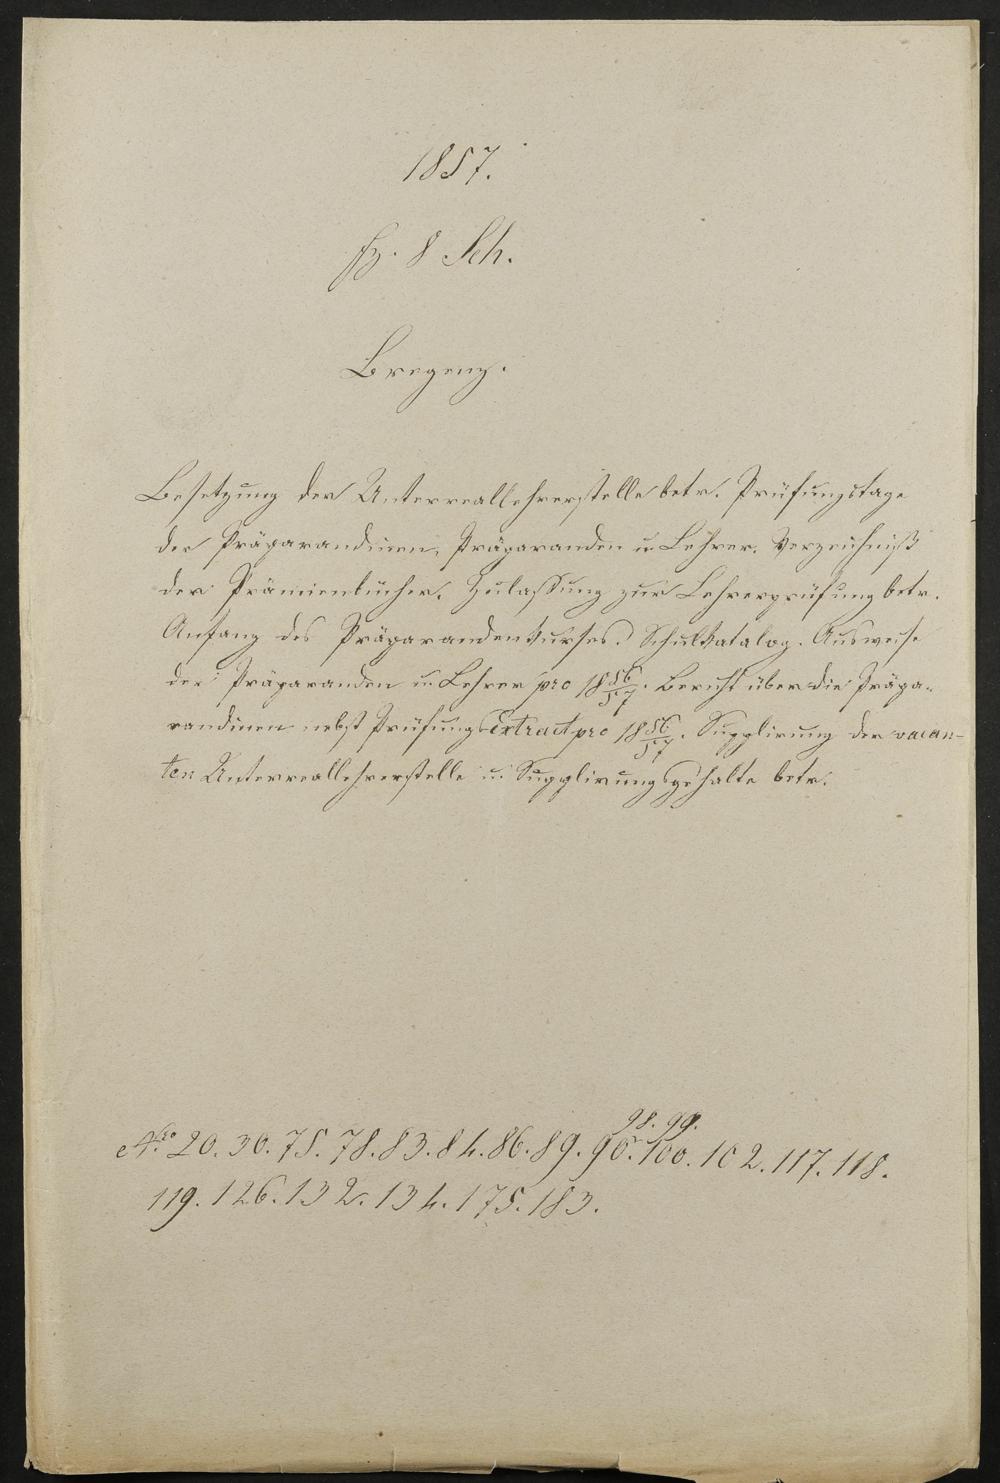 1857.
Fz. 8 Sch.
Bregenz.
Besetzung der Unterreallehrerstelle betr. Prüfungstage
der Präparandinen, Präparanden u Lehrer. Verzeichniß
der Prämienbücher. Zulassung zur Lehrerprüfung betr.
Anfang des Präparandenkurses. Schulkatalog. Ausweise
der Präparanden u. Lehrer pro 1856/57. Bericht über die Präpa-
randinen nebst Prüfungs Extract pro 1856/57. Supplirung der vacan-
ten Unterreallehrerstelle u. Supplirungsgehalte betr.
98. 99.
Nro 20. 30. 75. 78. 83. 84. 86. 89. 96. 100. 102. 117. 118.
119. 126. 132. 134. 175. 183.